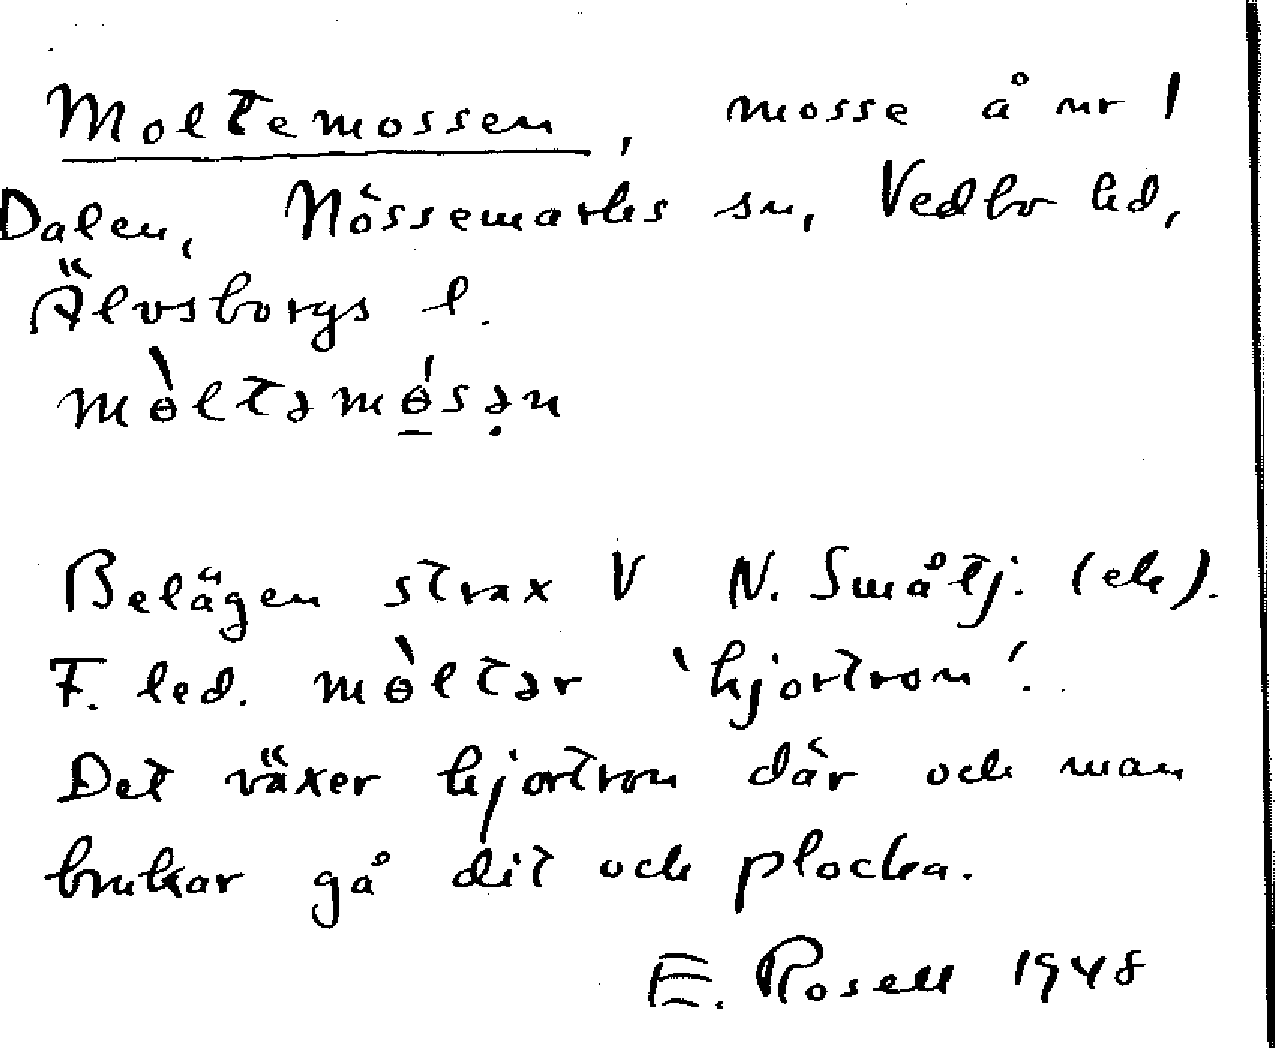 Moltemossen, mosse å nr 1
Dalen, Nössemarks sn, Vedbo hd,
Älvsborgs l.
mɵ̀ltəmɵ̲́sə̣n
Belägen strax V N. Småtj. (ek).
F. led. mɵ̀ltər 'hjortron'.
Det växer hjortron där och man
brukar gå dit och plocka.
E. Rosell 1948